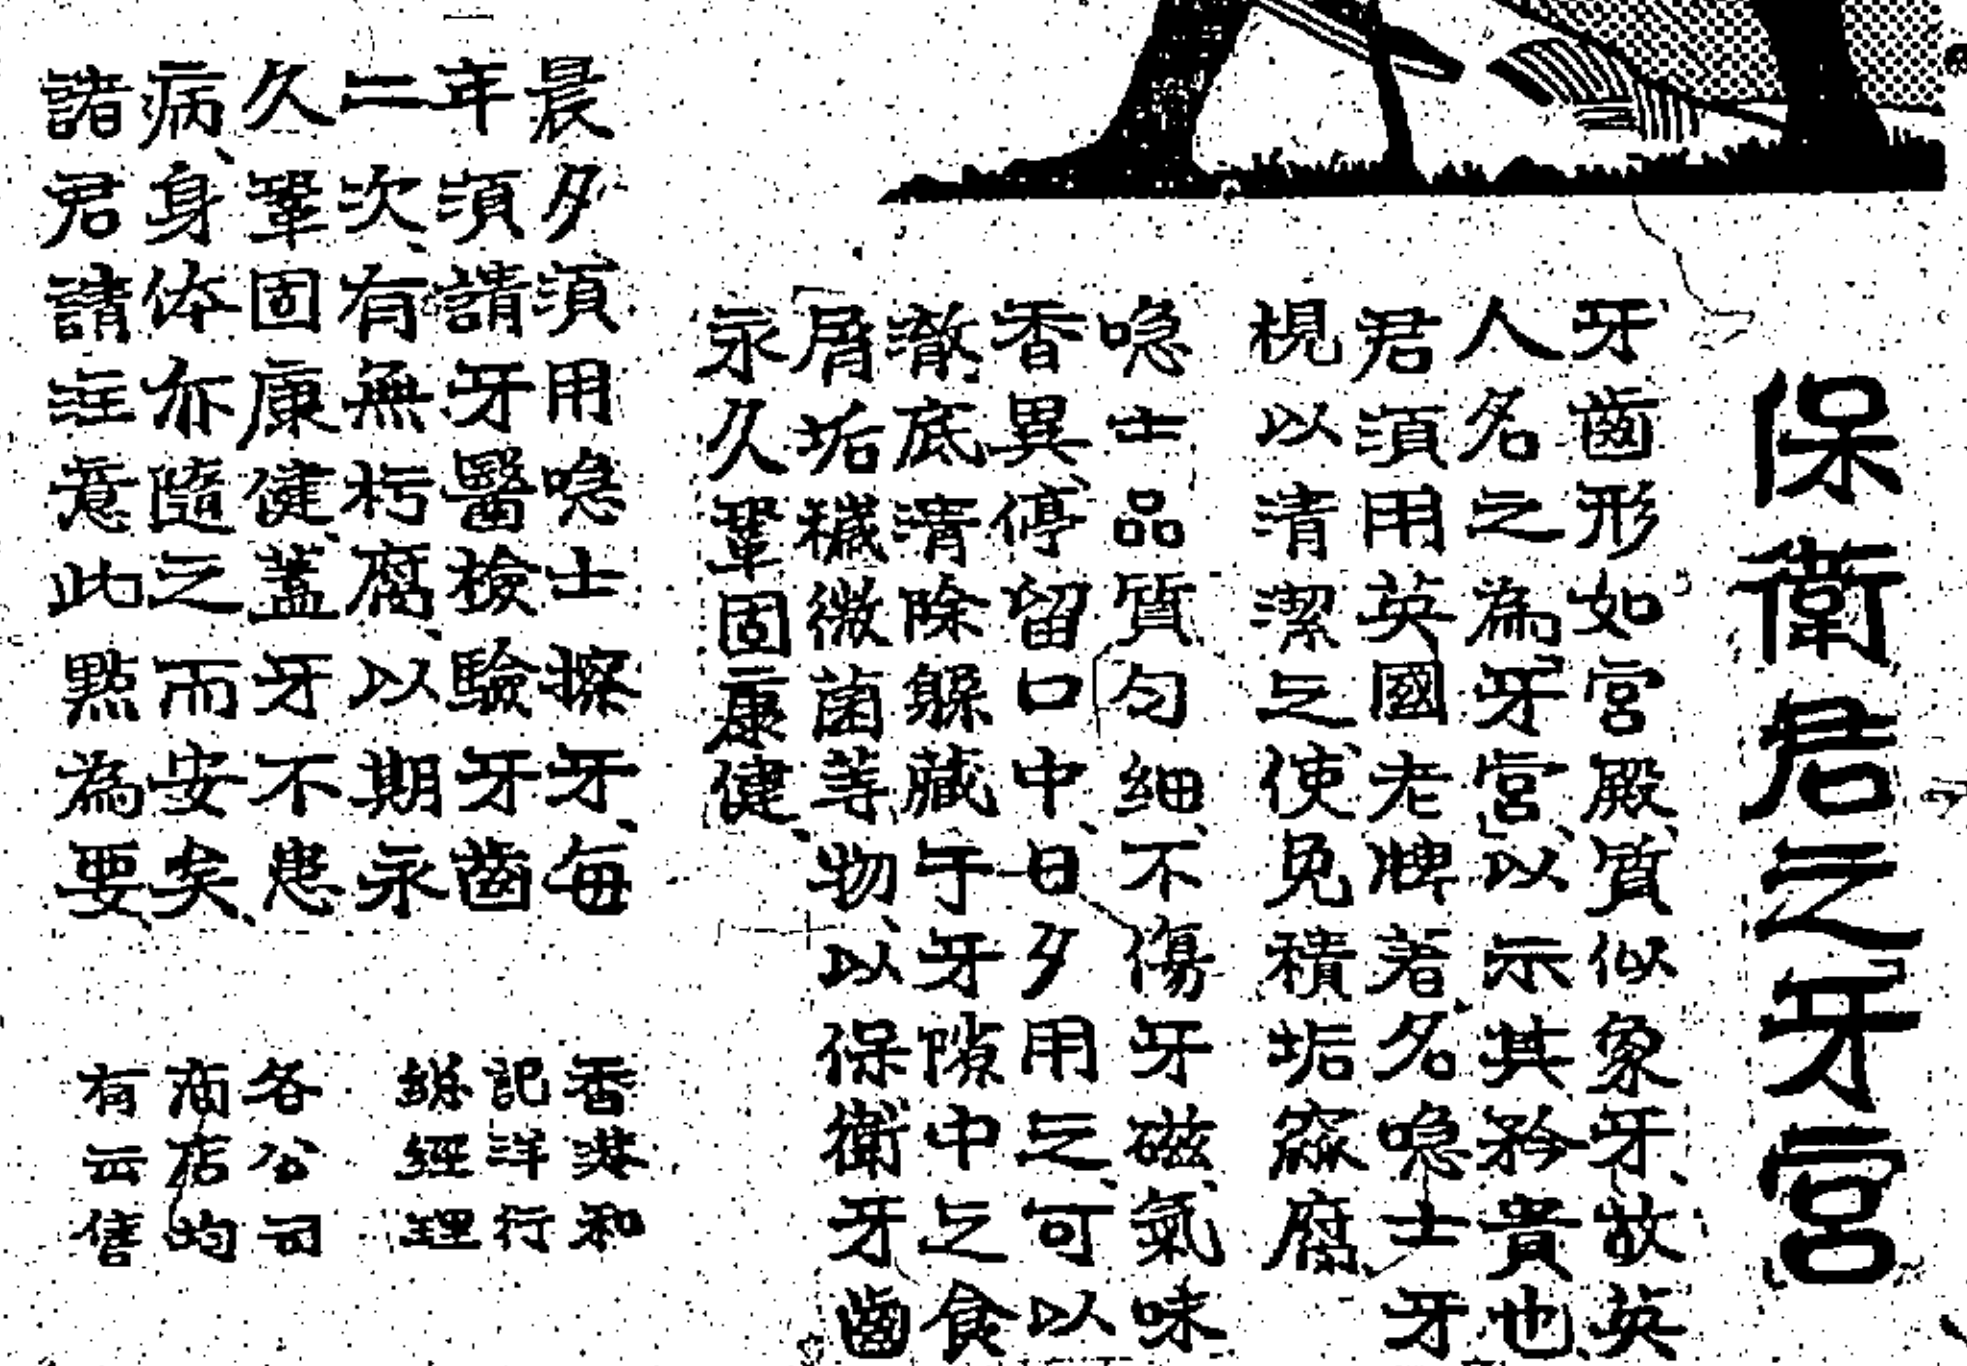 保衛君之牙宮
牙齒形如宮殿、質似象牙、故英
人名之為「牙宮」、以示其矜貴也、
君須用英國老牌著名喼士牙
梘以清潔之、使免積垢窳腐、
喼士品質勻細、不傷牙磁、氣味
香異、停留口中、日夕用之、可以
澈底清除躲藏于牙隙中之食
屑垢穢微菌等物、以保衛牙齒
永久鞏固康健、
晨夕須用喼士擦牙、每
年須請牙醫檢驗牙齒
二次、有無朽腐、以期永
久鞏固康健、蓋牙不患
病、身体亦隨之而安矣、
諸君請注意此點為要、
香港和
記洋行
總經理
各公司
商店均
有云售